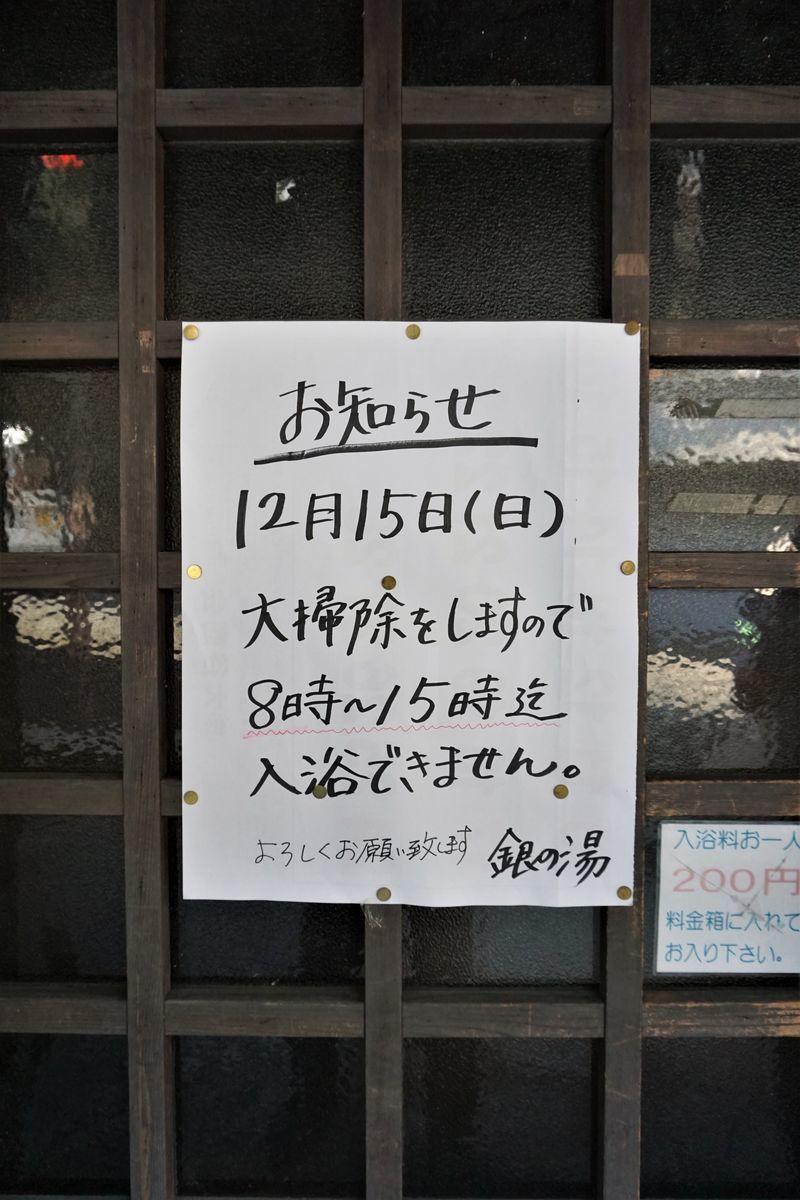 お知らせ
12月15日(日)
大掃除をしますので
8時〜15時迄
入浴できません。
よろしくお願い致します 銀の湯
入浴料お一人
200円
料金箱に入れて
お入り下さい。